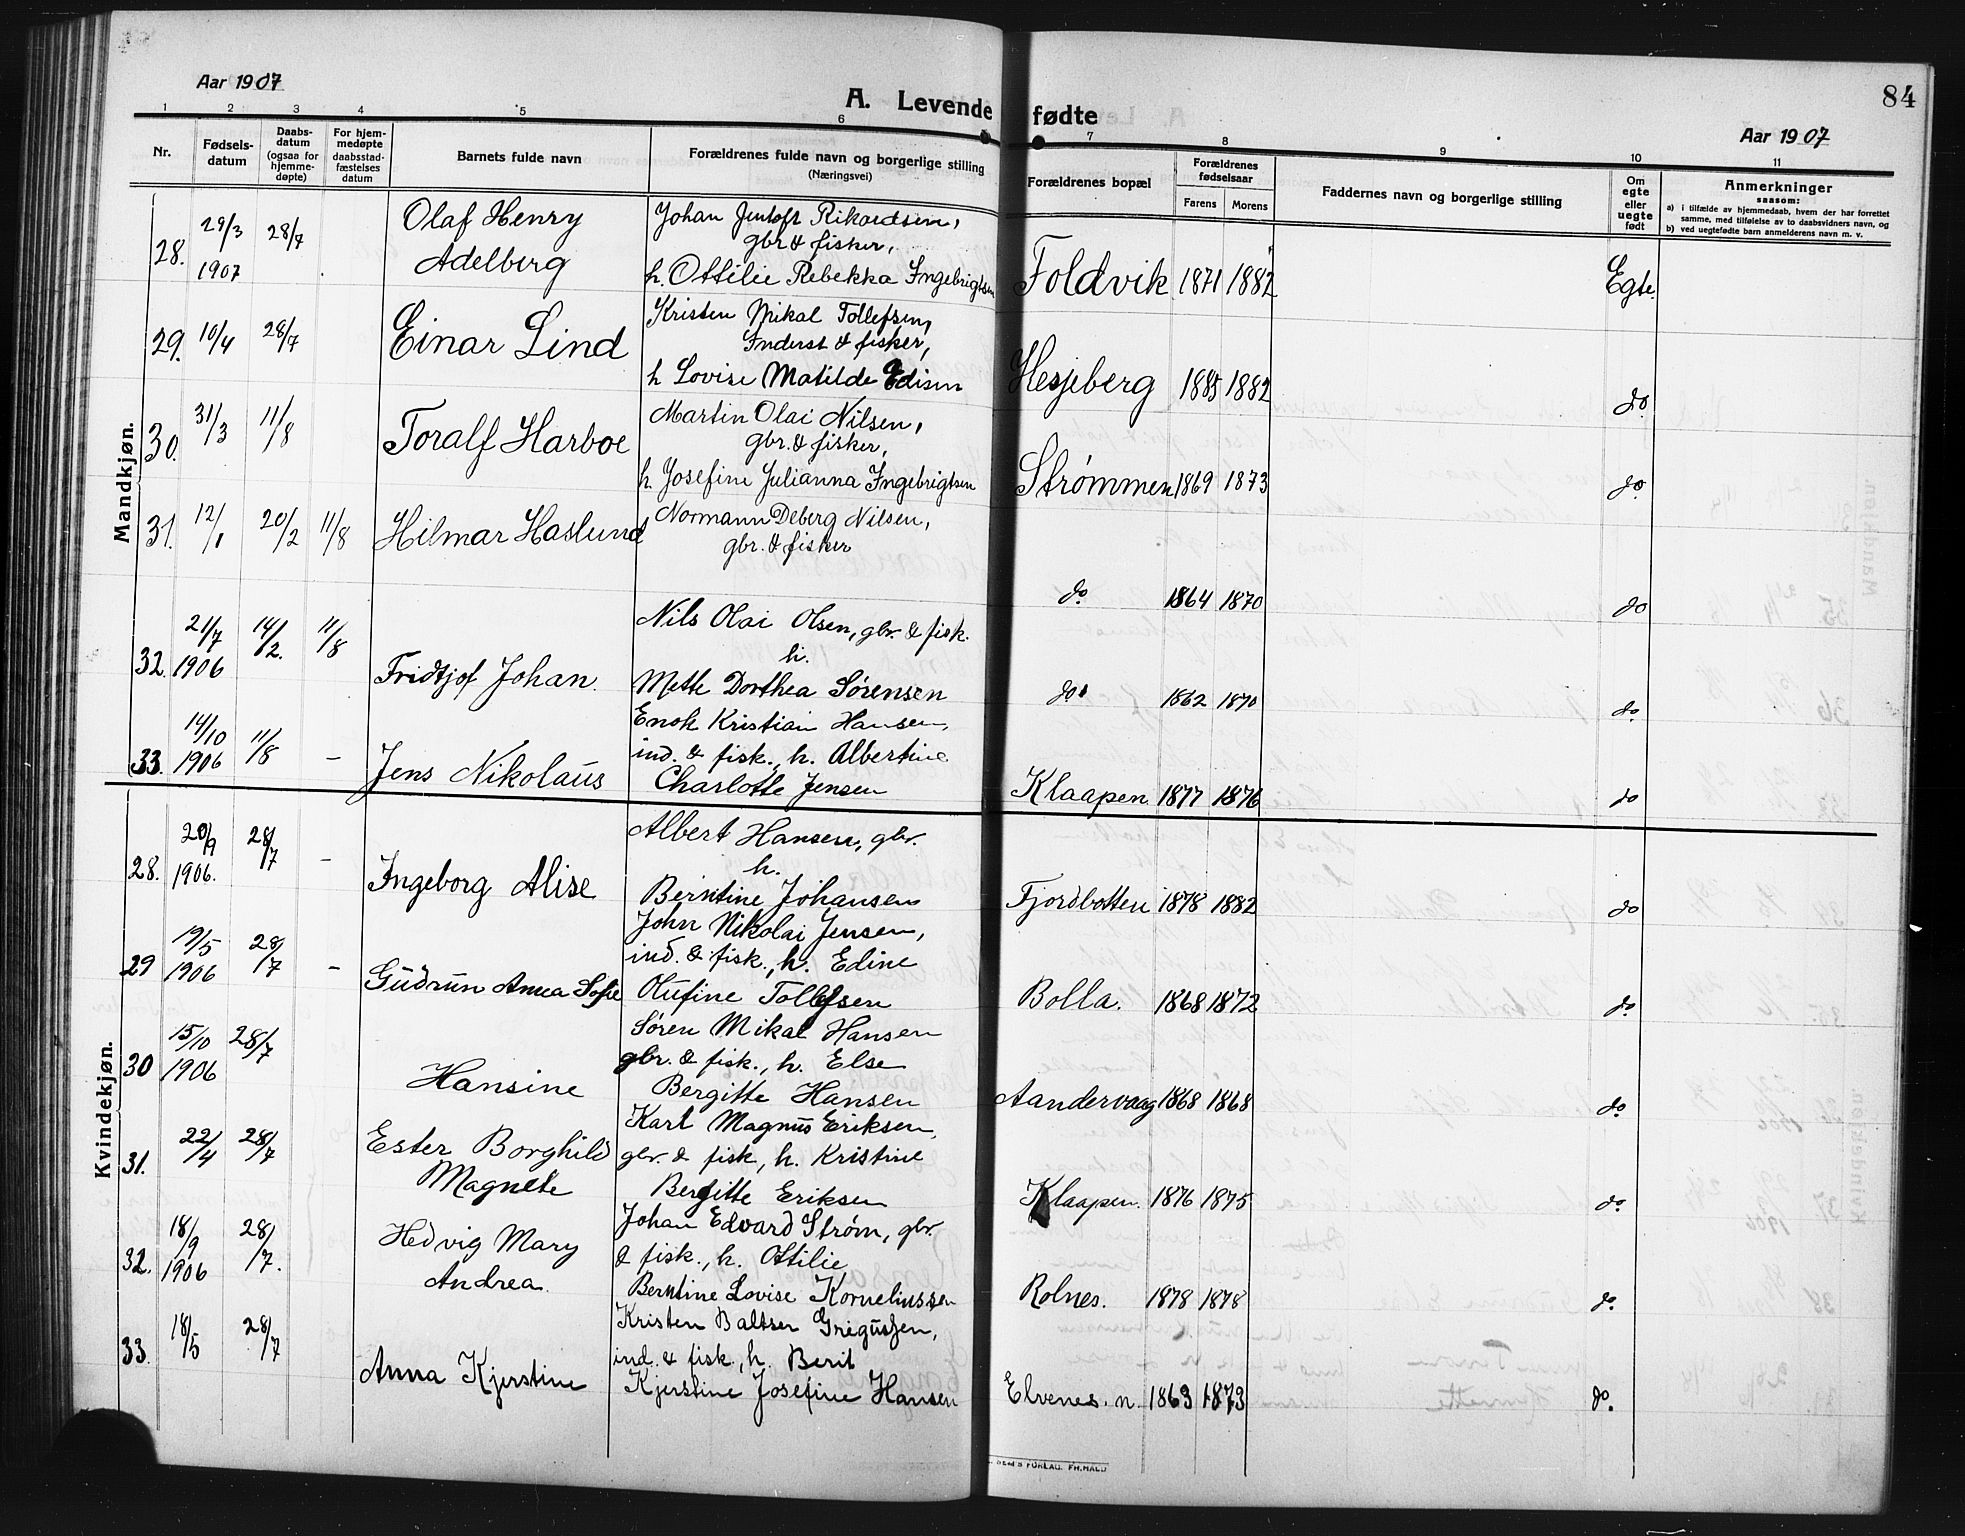 84
Aar 1907
A. Levende fødte
Aar 1907
1 2 3 4 5 6 7 8 9 10 11
Nr.
Fødsels-
datum
Daabs-
datum
(ogsaa for
hjemme-
døpte)
For hjem-
medøpte
daabsstad-
fæstelses
datum
Barnets fulde navn
Forældrenes fulde navn og borgerlige stilling
(Næringsvei)
Forældrenes bopæl
Forældrenes
fødselsaar
Farens Morens
Faddernes navn og borgerlige stilling
Om
egte
eller
uegte
født
Anmerkninger
saasom:
a) i tilfælde av hjemmedaab, hvem der har forrettet
samme, med tilføielse av to daabsvidners navn, og
b) ved uegtefødte barn anmelderens navn m. v.
Mandkjøn.
28. 29/3 1907 28/7
Olaf Henry
Adelberg
Johan Jentoft Rikardsen,
gbr & fisker,
h. Ottilie Rebekka Ingebrigtsen
Foldvik 1871 1882 Egte.
29. 10/4 28/7
Einar Lind
Kristen Mikal Tollefsen,
Inderst & fisker,
h Lovise Matilde Edisen
Hesjeberg 1885 1882 do
30. 31/3 11/8
Toralf Harboe
Martin Olai Nilsen,
gbr. & fisker,
h Josefine Julianna Ingebrigtsen
Strømmen 1869 1873 do.
31. 12/1 20/2 11/8
Hilmar Haslund
Normann Deberg Nilsen,
gbr. & fisker
do. 1864 1870 do
32. 21/7 1906 14/2. 11/8
Fridtjof Johan.
Nils Olai Olsen, gbr. & fisk.
h.
Mette Dorthea Sørensen
do. 1862 1870 do.
33. 14/10 1906 11/8 –
Jens Nikolaus
Enok Kristian Hansen,
ind. & fisk., h. Albertine
Charlotte Jensen
Klaapen 1877 1876 do
Kvindekjøn.
28. 20/9 1906. 28/7 –
Ingeborg Alise
Albert Hansen, gbr.
h.
Berntine Johansen
Fjordbotten 1878 1882 do
29 19/5 1906 28/7 –
Gudrun Anna Sofie
John Nikolai Jensen,
ind. & fisk., h. Edine
Olufine Tollefsen
Bolla. 1868 1872 do.
30 15/10 1906 28/7
Hansine
Søren Mikal Hansen
gbr. & fisk., h. Else
Bergitte Hansen
Aandervaag 1868 1868 do.
31. 22/4 28/7
Ester Borghild
Magnete
Karl Magnus Eriksen,
gbr. & fisk, h. Kristine
Bergitte Eriksen
Klaapen. 1876 1875 do.
32. 18/9 1906 28/7.
Hedvig Mary
Andrea.
Johan Edvard Strøm, gbr.
& fisk., h. Ottilie
Berntine Lovise Korneliussen
Rolnes. 1878 1878 do.
33. 18/5 28/7
Anna Kjerstine
Kristen Baltser Grigusjen,
ind. & fisk, h. Berit
Kjerstine Josefine Hansen
Elvenes. n. 1863 1873 do.
FORLAG. FR.HALD